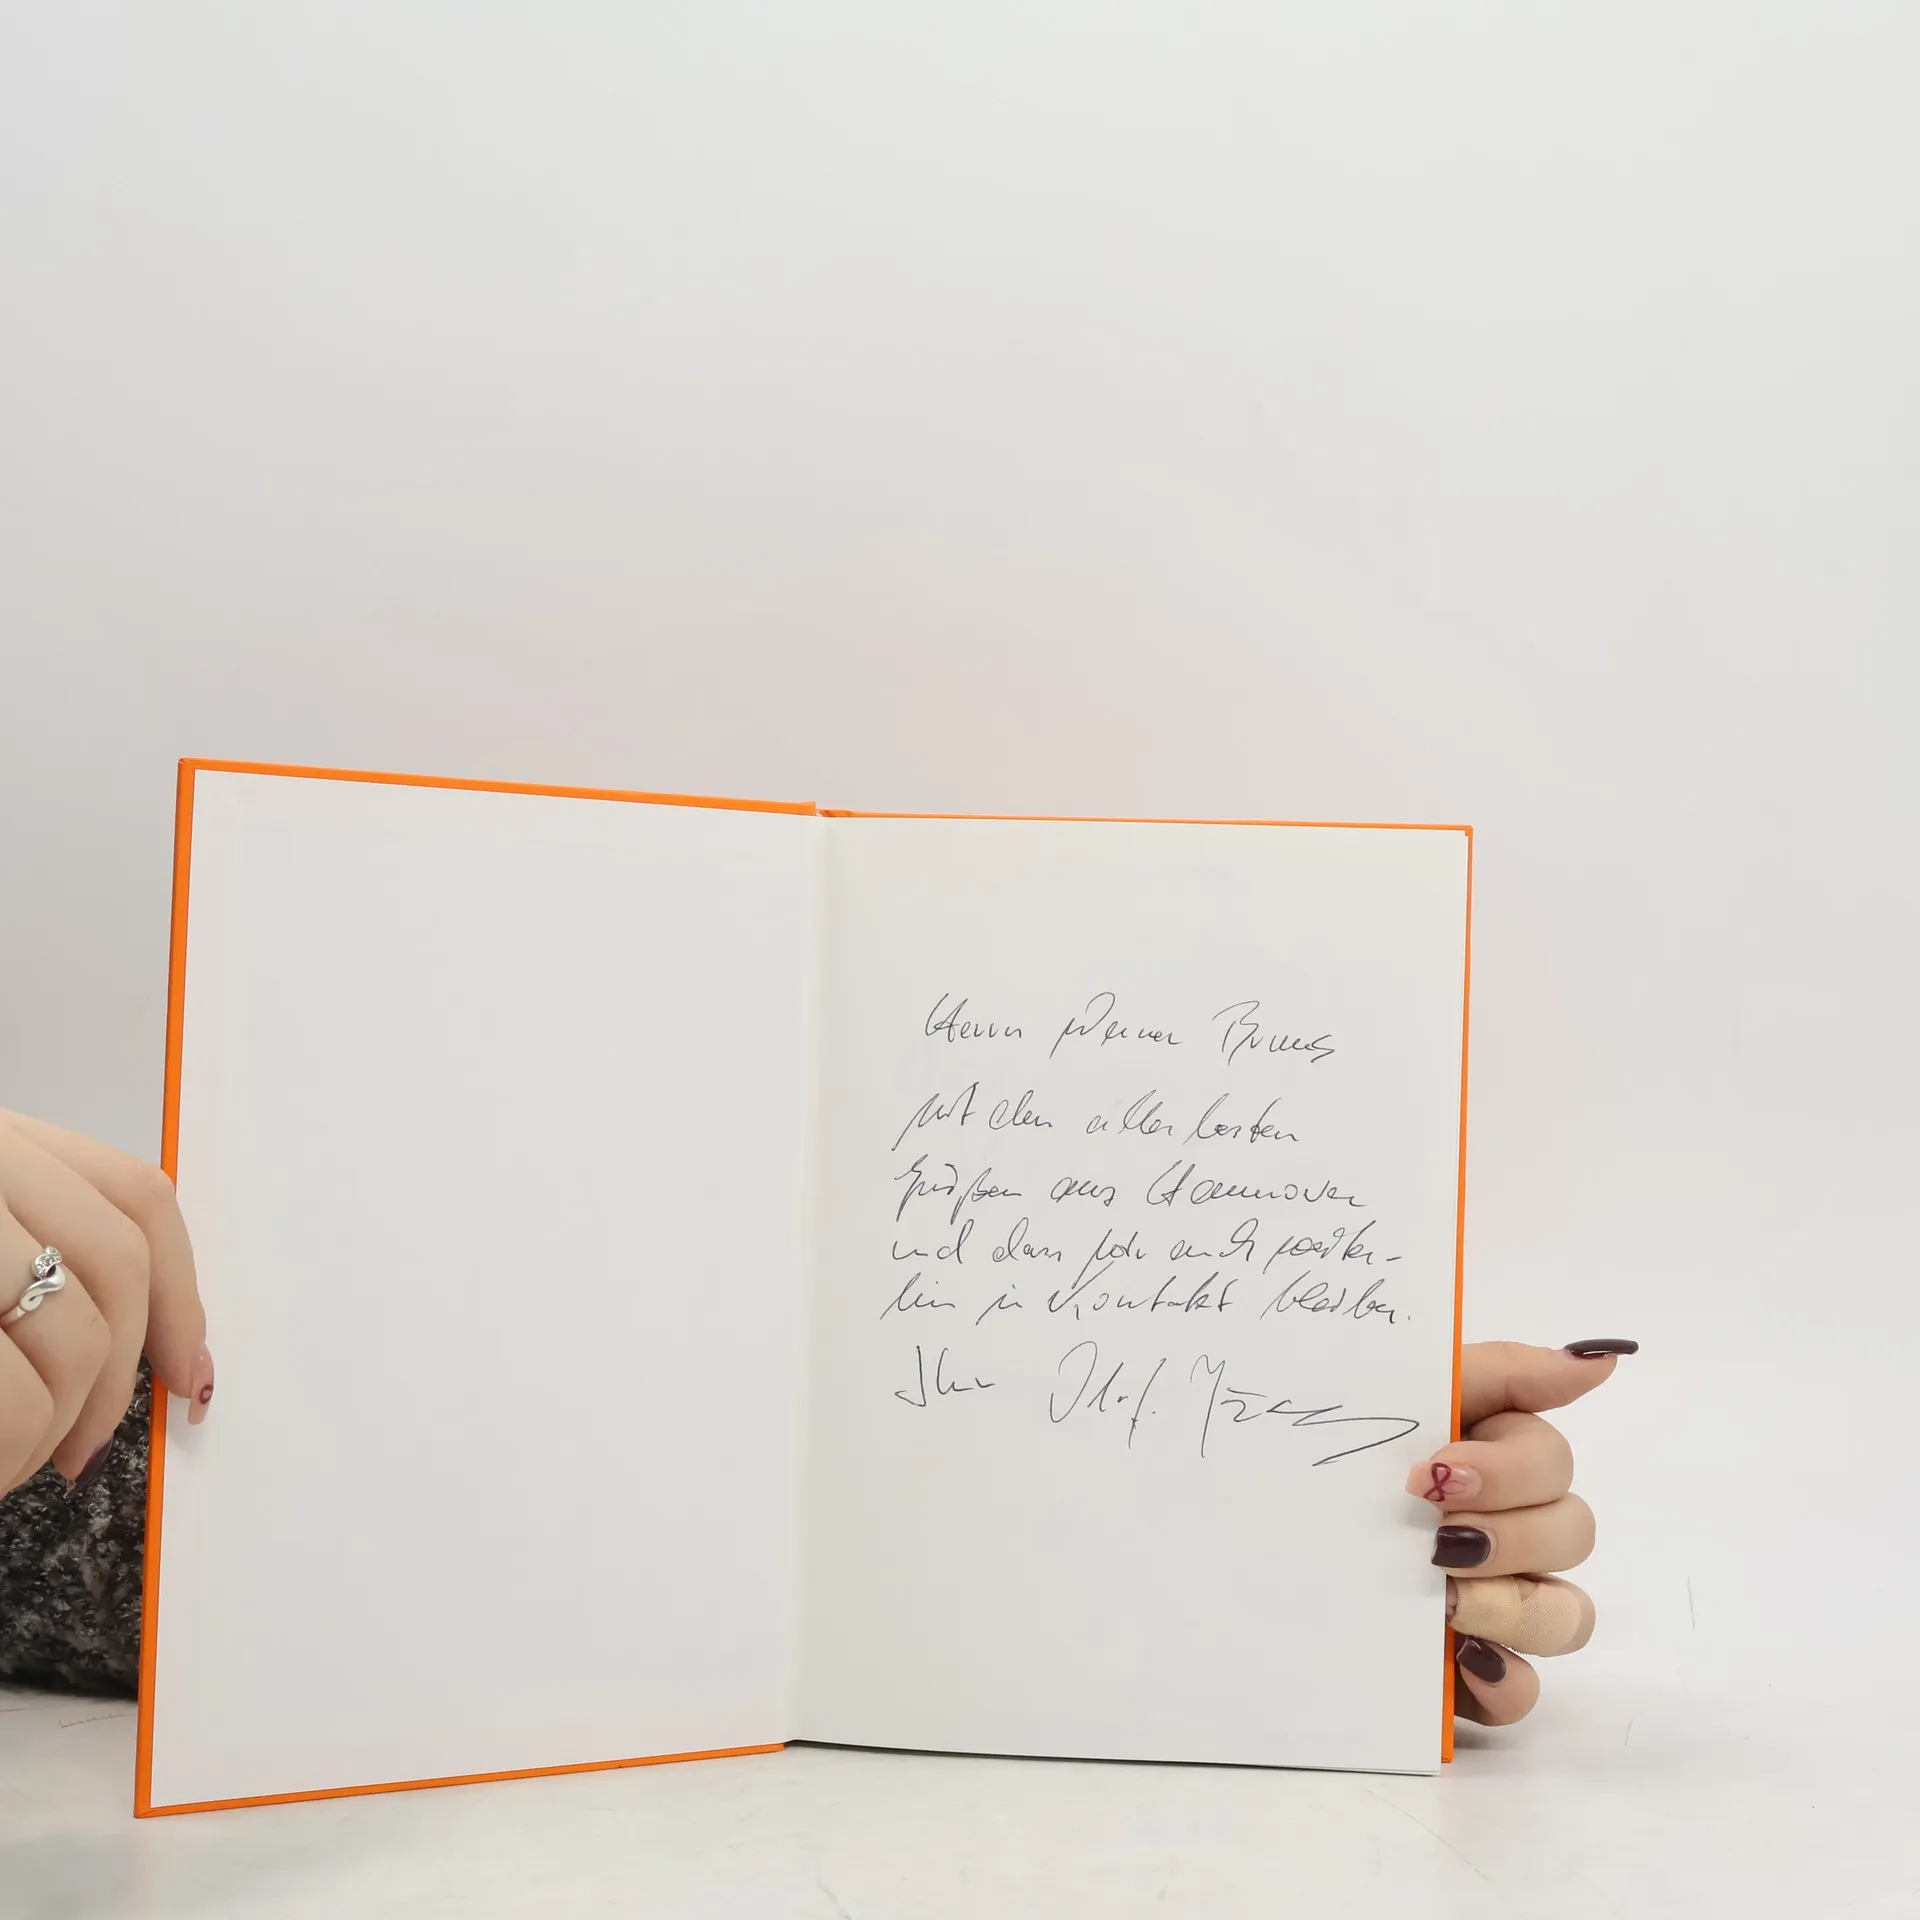 Herrn Werner Bruns
mit den allerbesten
Grüßen aus Hannover
und dass wir auch weiter-
hin in Kontakt bleiben.
Ihr Olaf